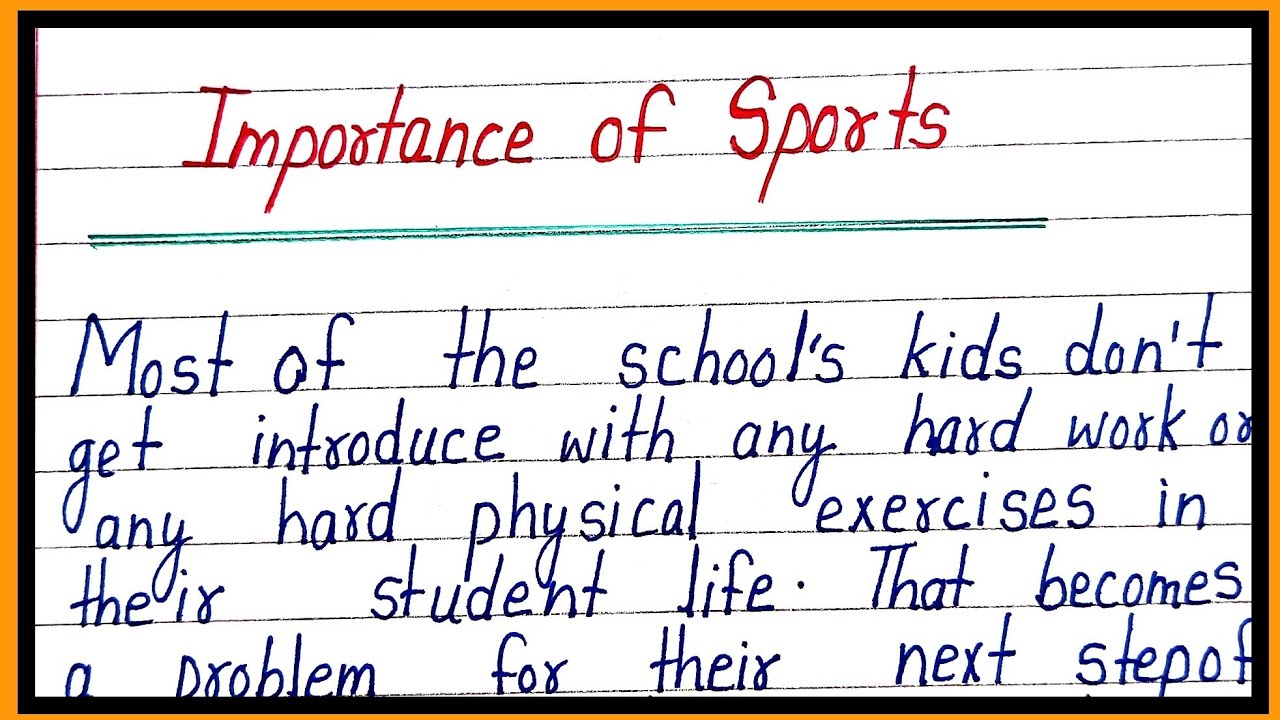 Importance of Sports
Most of the school's kids don't
get introduce with any hard work or
any hard physical exercises in
their student life. That becomes
a problem for their next stepof